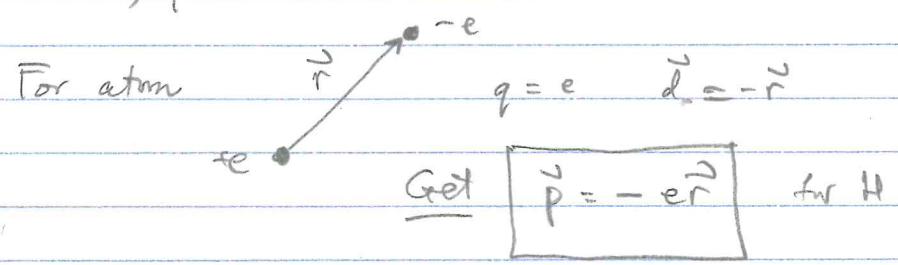 -e
For atom r⃗ q = e d⃗ = -r⃗
+e
Get p⃗ = - er⃗ for H